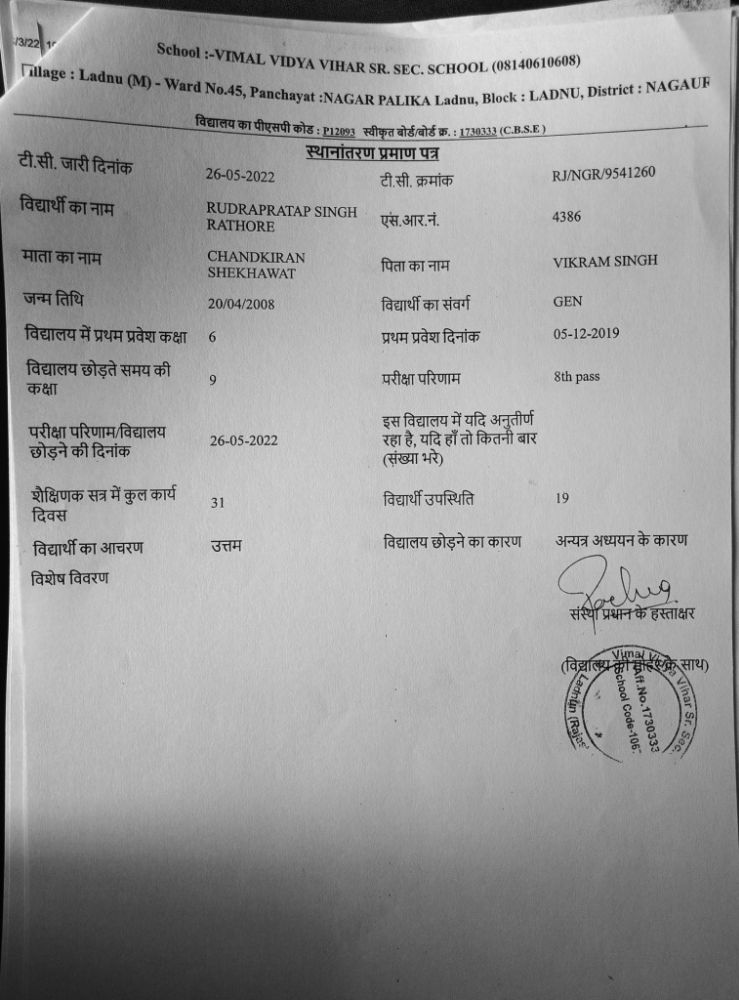 /3/22
School :-VIMAL VIDYA VIHAR SR. SEC. SCHOOL (08140610608)
Village : Ladnu (M) - Ward No.45, Panchayat :NAGAR PALIKA Ladnu, Block : LADNU, District : NAGAUR
विद्यालय का पीएसपी कोड : P12093 स्वीकृत बोर्ड/बोर्ड क्र. : 1730333 (C.B.S.E )
स्थानांतरण प्रमाण पत्र
टी.सी. जारी दिनांक 26-05-2022 टी.सी. क्रमांक RJ/NGR/9541260
विद्यार्थी का नाम RUDRAPRATAP SINGH RATHORE एस.आर.नं. 4386
माता का नाम CHANDKIRAN SHEKHAWAT पिता का नाम VIKRAM SINGH
जन्म तिथि 20/04/2008 विद्यार्थी का संवर्ग GEN
विद्यालय में प्रथम प्रवेश कक्षा 6 प्रथम प्रवेश दिनांक 05-12-2019
विद्यालय छोड़ते समय की कक्षा 9 परीक्षा परिणाम 8th pass
परीक्षा परिणाम/विद्यालय छोड़ने की दिनांक 26-05-2022 इस विद्यालय में यदि अनुतीर्ण रहा है, यदि हाँ तो कितनी बार (संख्या भरे)
शैक्षिणक सत्र में कुल कार्य दिवस 31 विद्यार्थी उपस्थिति 19
विद्यार्थी का आचरण उत्तम विद्यालय छोड़ने का कारण अन्यत्र अध्ययन के कारण
विशेष विवरण
संस्था प्रधान के हस्ताक्षर
(विद्यालय की मोहर के साथ)
Vimal Vidya Vihar Sr. Sec.
Aff.No.1730333
School Code-106
Ladnun (Rajas